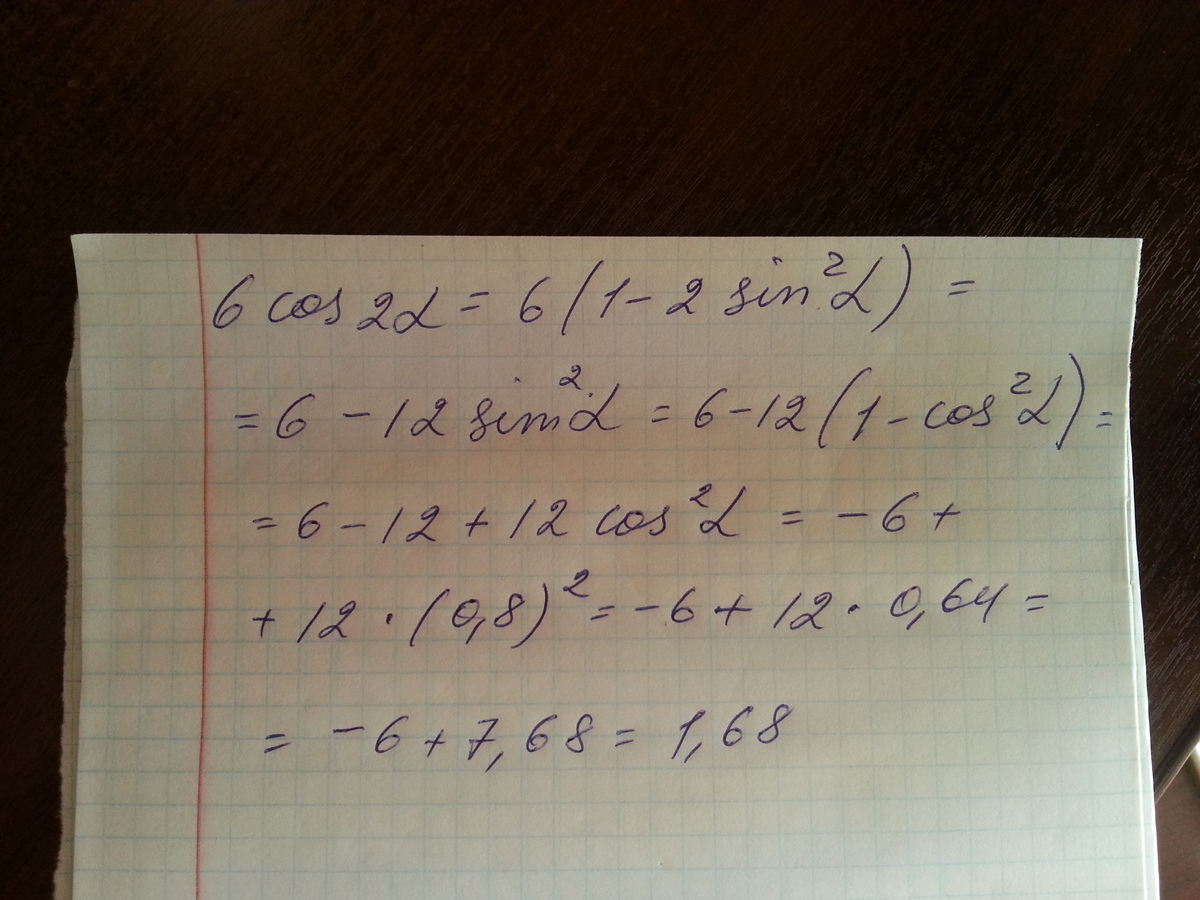 6 cos 2α = 6 (1 - 2 sin²α) =
= 6 - 12 sin²α = 6 - 12 (1 - cos²α) =
= 6 - 12 + 12 cos²α = - 6 +
+ 12 · (0,8)² = - 6 + 12 · 0,64 =
= - 6 + 7,68 = 1,68